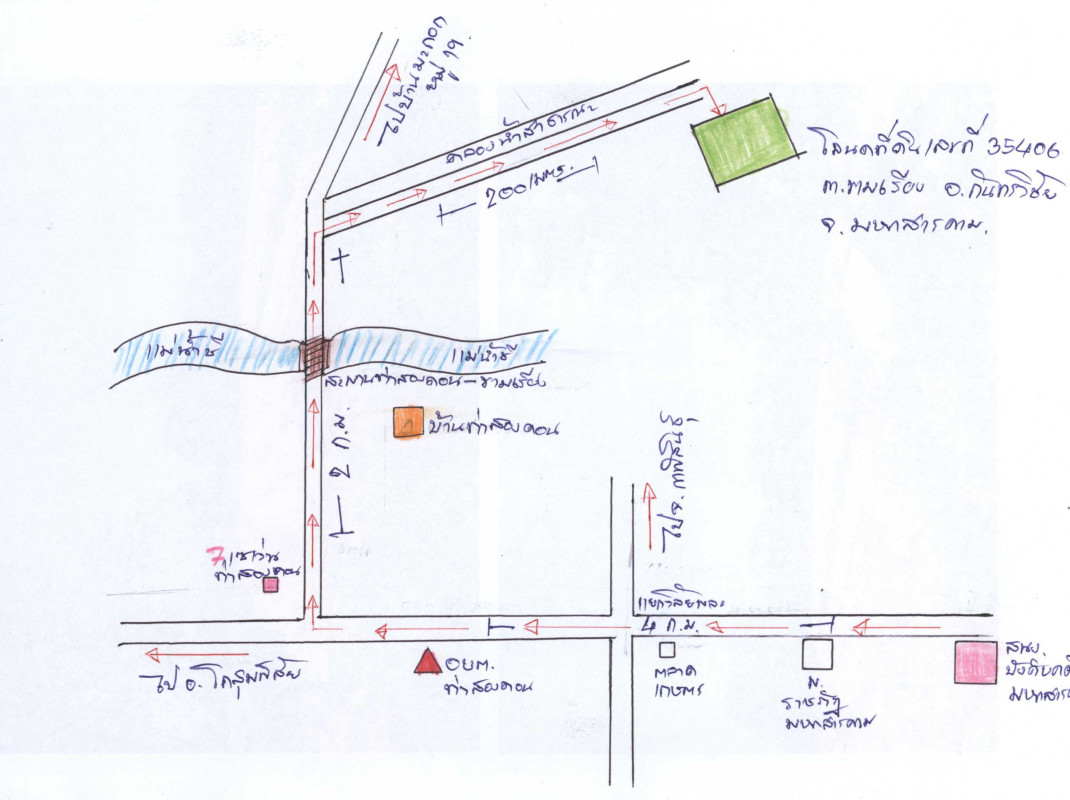 ไปบ้านมะกอก
หมู่ 19
คลองน้ำสาธารณะ
200 เมตร.
โฉนดที่ดินเลขที่ 35406
ต.ขามเรียง อ.กันทรวิชัย
จ.มหาสารคาม.
แม่น้ำชี
แม่น้ำชี
สะพานท่าสองคอน-ขามเรียง
บ้านท่าสองคอน
2 ก.ม.
ไป จ.กาฬสินธุ์
7 เซเว่น
ท่าสองคอน
แยกวิสัยพละ
4 ก.ม.
ไป อ.โกสุมพิสัย
อบต.
ท่าสองคอน
ตลาด
เกษตร
ม.
ราชภัฏ
มหาสารคาม
สนง.
บังคับคดี
มหาสาร